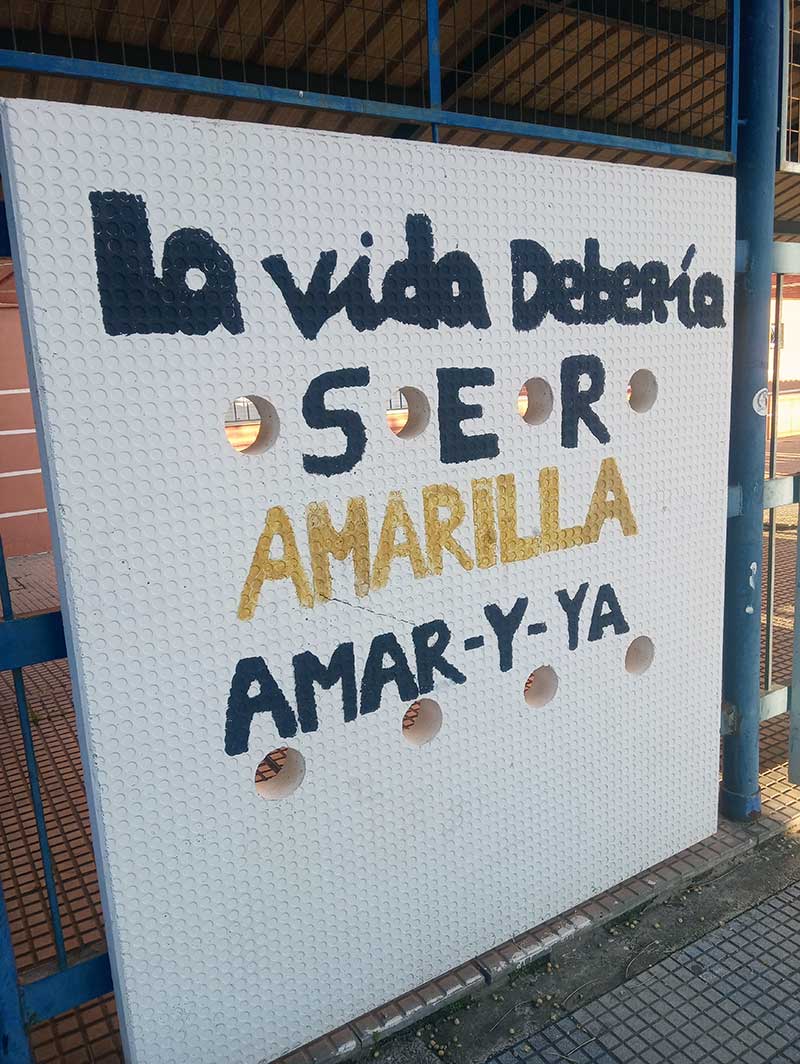 La vida Debería
SER
AMARILLA
AMAR-Y-YA